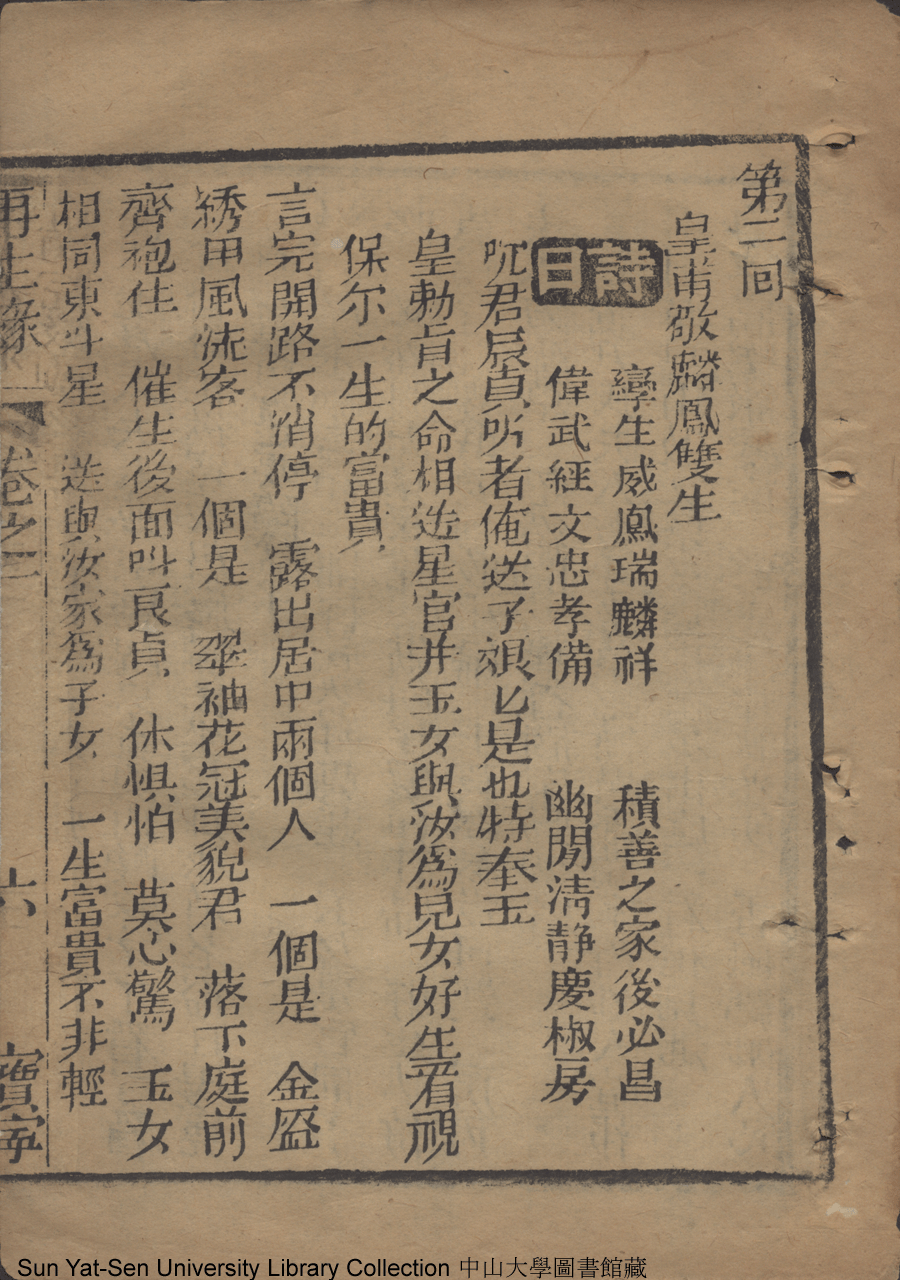 第二回
皇甫敬麟鳳雙生
詩曰
孿生威鳳瑞麟祥　積善之家後必昌
偉武經文忠孝備　幽閒淸静慶椒房
君辰貞听者俺送子娘匕是也特奉玉
皇勅旨之命相送星官并玉女與汝爲見女好生看視
保尔一生的富貴
言完開路不消停　露出居中兩個人　一個是　金盔
綉甲風流客　一個是　翠袖花冠美貌君　落下庭前
齊袍住　催生後面叫良貞　休惧怕　莫心驚　玉女
相同東斗星　送與汝家爲子女　一生富貴不非輕
再生緣　卷之二　六　寳寜
Sun Yat-Sen University Library Collection 中山大學圖書館藏